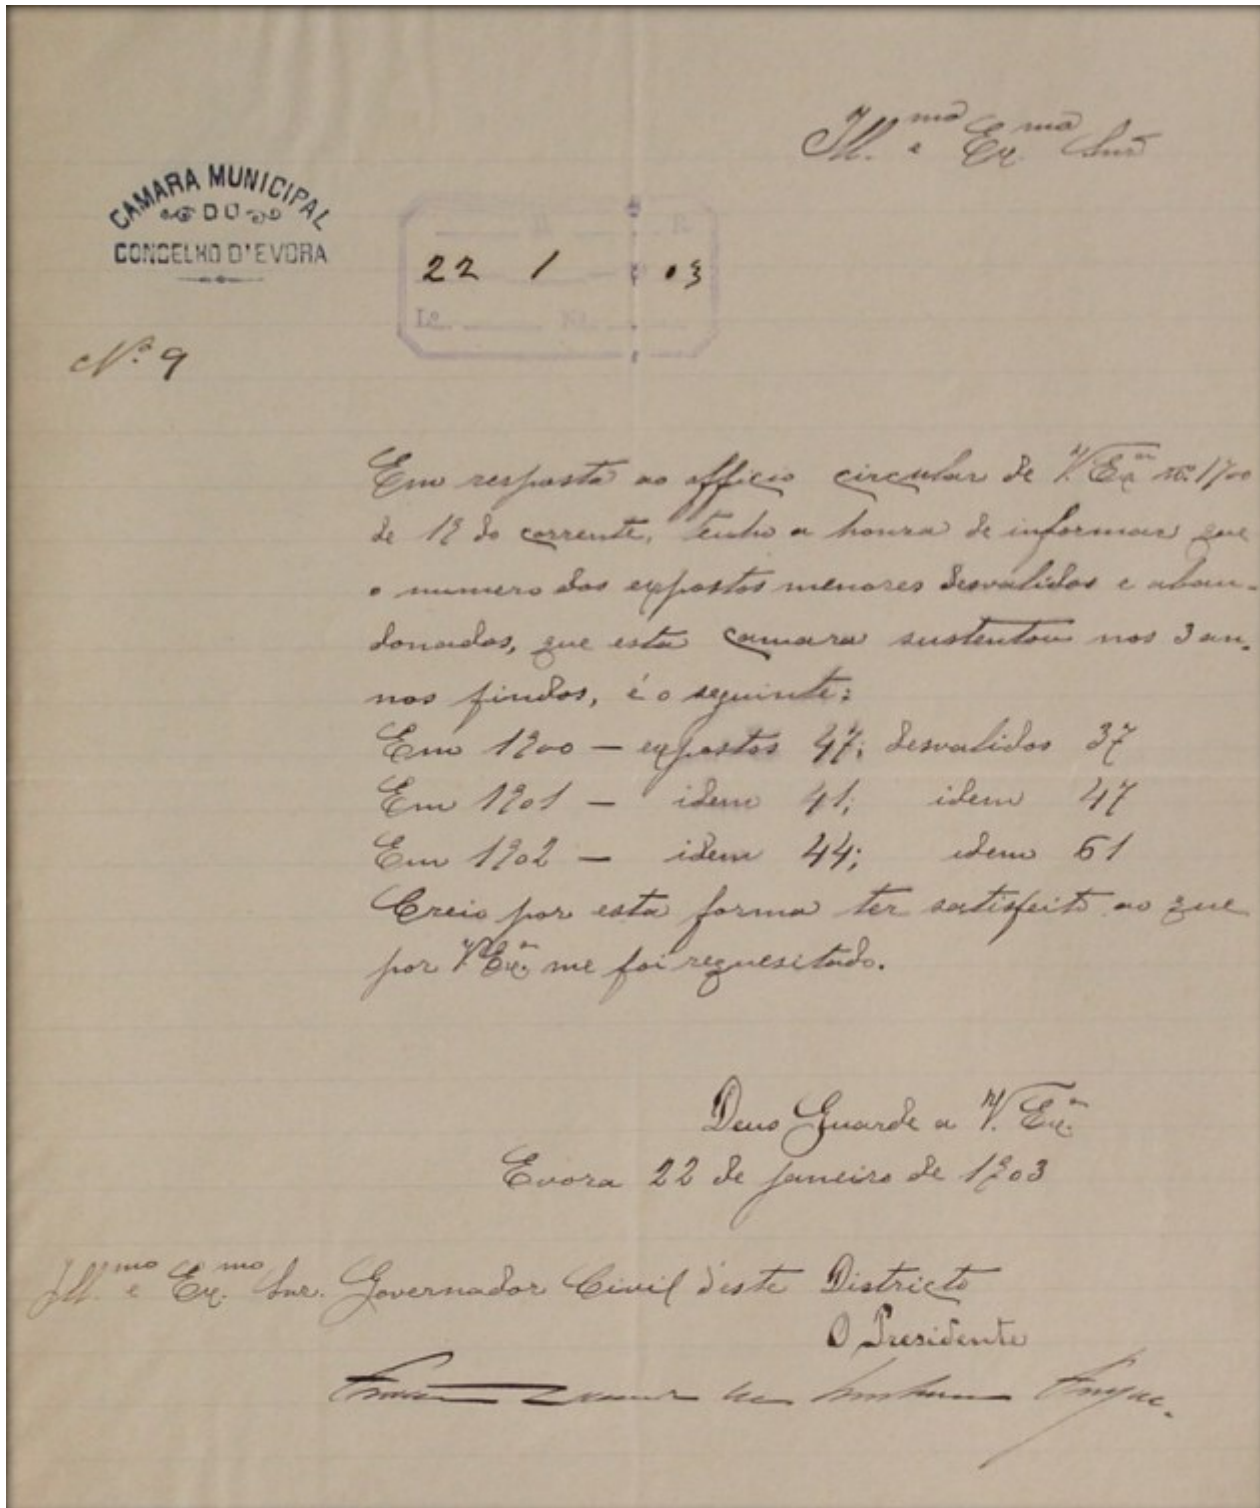 Ill.mo e Ex.mo Snr.
CAMARA MUNICIPAL
DO
CONCELHO D'EVORA
22 1 03
Lº Nº
Nº 9
Em resposta ao officio circular de V. Ex.ª nº
de do corrente, tenho a honra de informar que
o numero dos expostos menores desvalidos e aban-
donados, que esta camara sustentou nos 3 an-
nos findos, é o seguinte:
Em 1900 — expostos 47; desvalidos 37
Em 1901 — idem 41; idem 47
Em 1902 — idem 44; idem 61
Creio por esta forma ter satisfeito ao que
por V. Ex.ª me foi requesitado.
Deus Guarde a V. Ex.ª
Evora 22 de janeiro de 1903
Ill.mo e Ex.mo Snr. Governador Civil d'este Districto
O Presidente